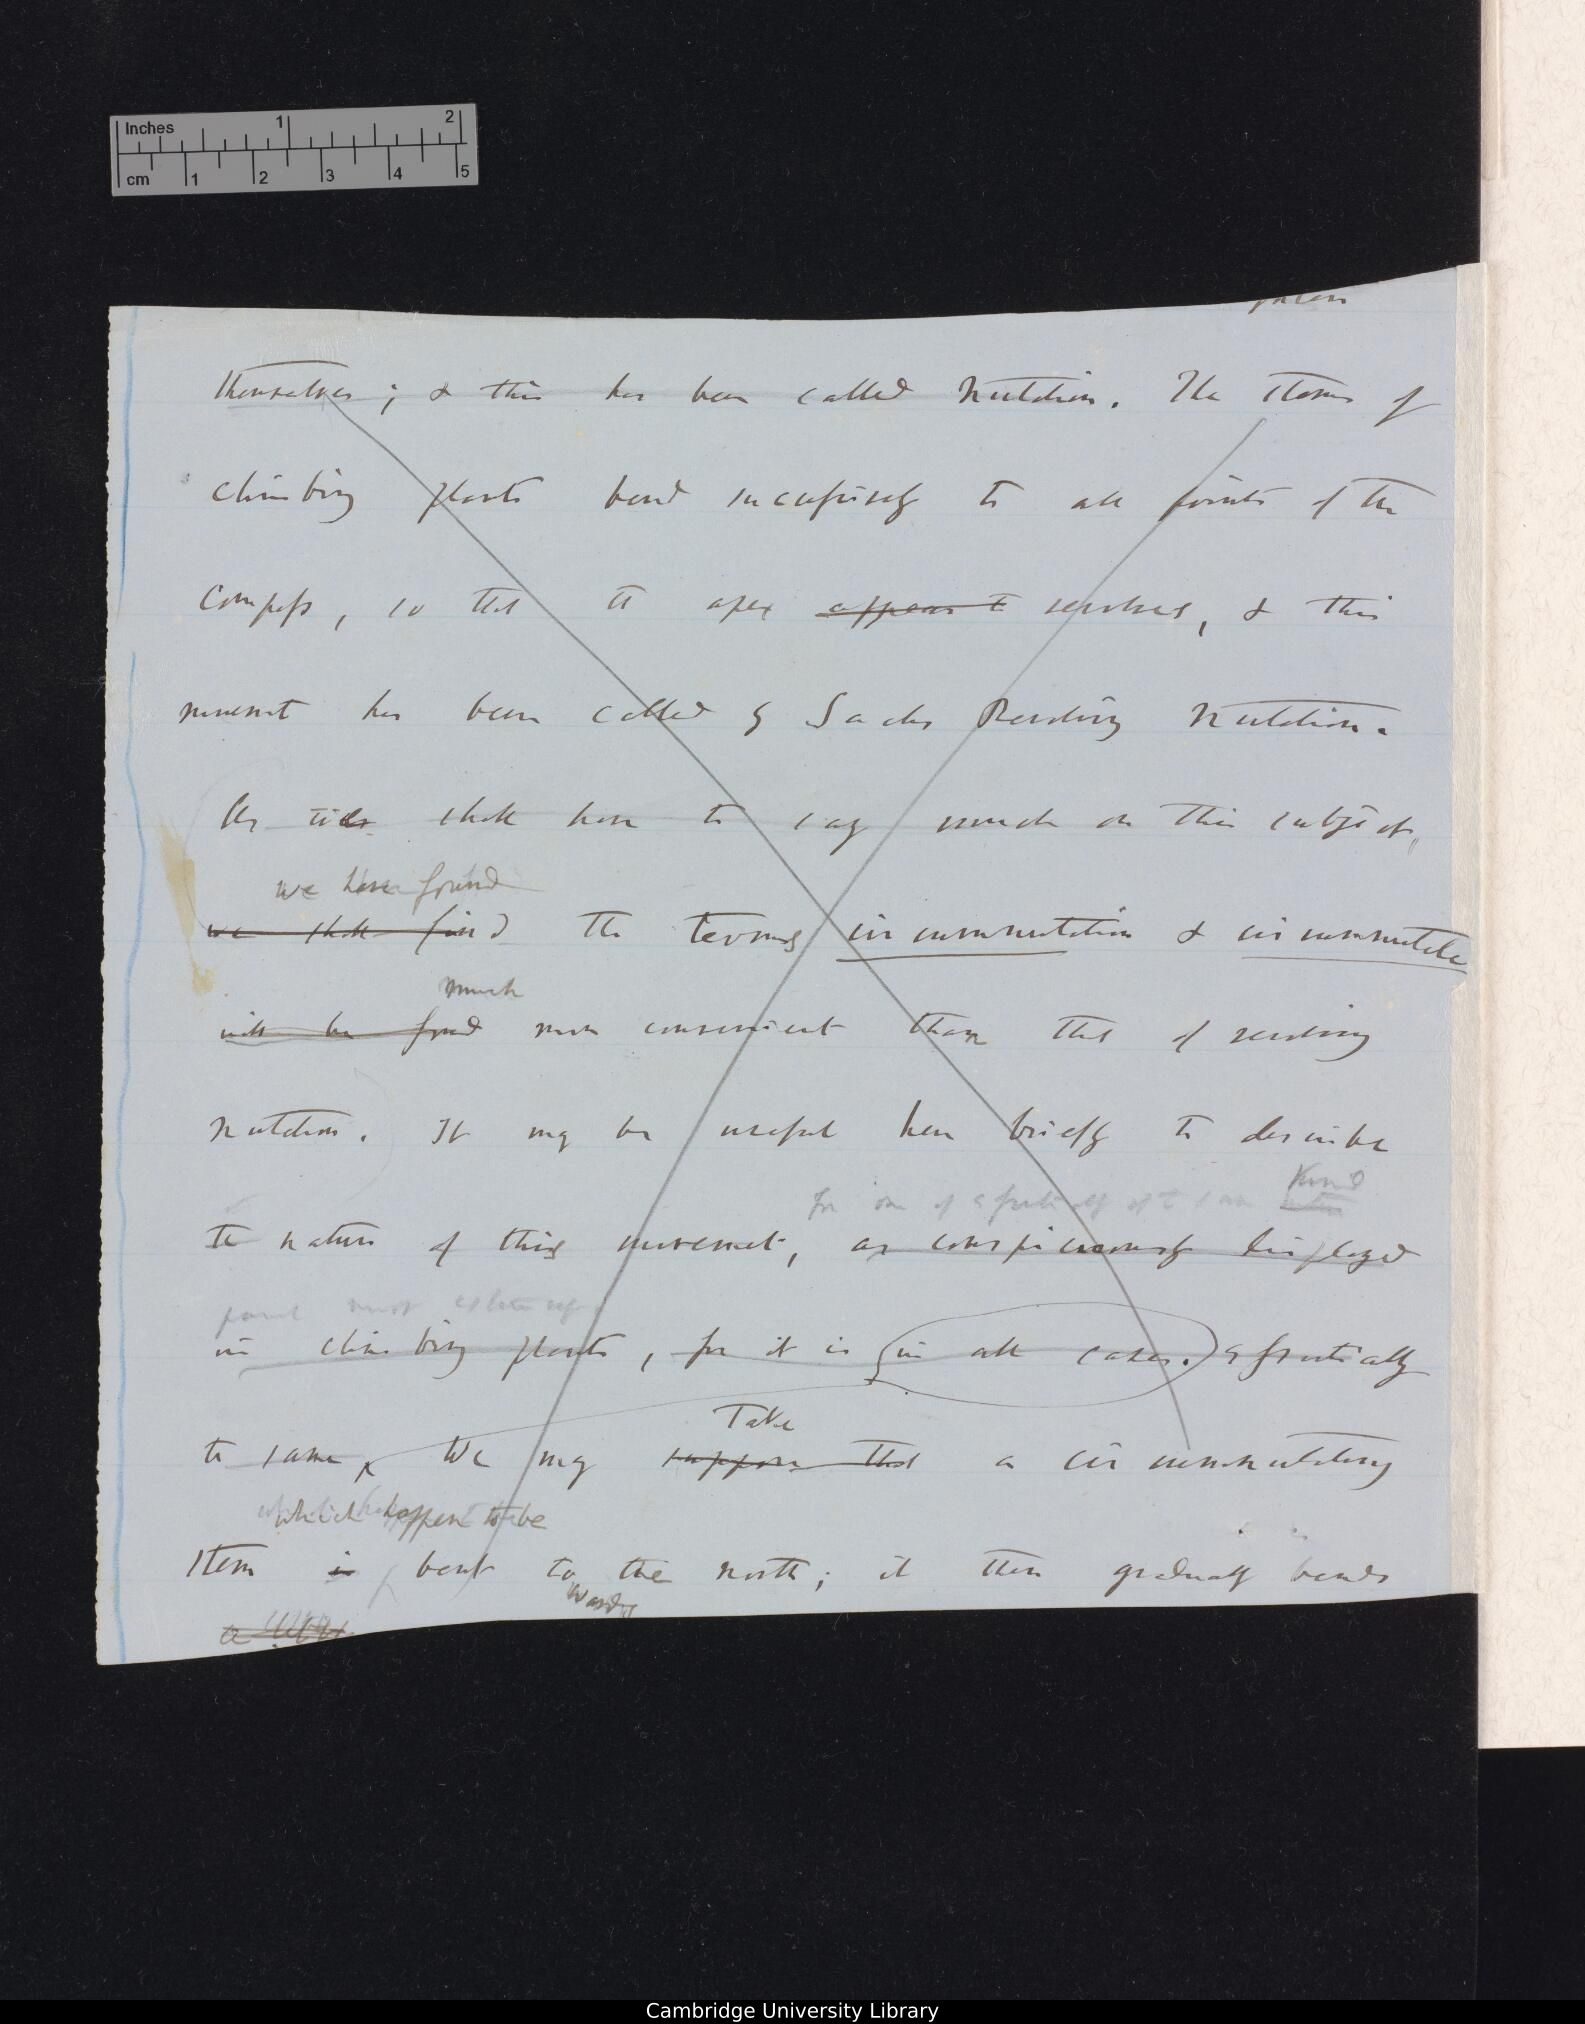 Inches 1 2
cm 1 2 3 4 5
themselves; & this has been called Nutation. The stems of
climbing plants bend successively to all points of the
compass, so that the apex appears to revolves, & this
movement has been called by Sachs Revolving Nutation.
As shall have to say much on this subject,
we have found
we shall find the terms circumnutation & circumnutate
much
will be found more convenient than that of revolving
nutation. It may be useful here briefly to describe
for one of essentially of the same kind
the nature of this movement, as conspicuously displayed
in climbing plants, for it is in all cases. essentially
Take
the same, We may suppose that a circumnutating
which happens to be
stem is bent to the north; it then gradually bends
wards
Cambridge University Library